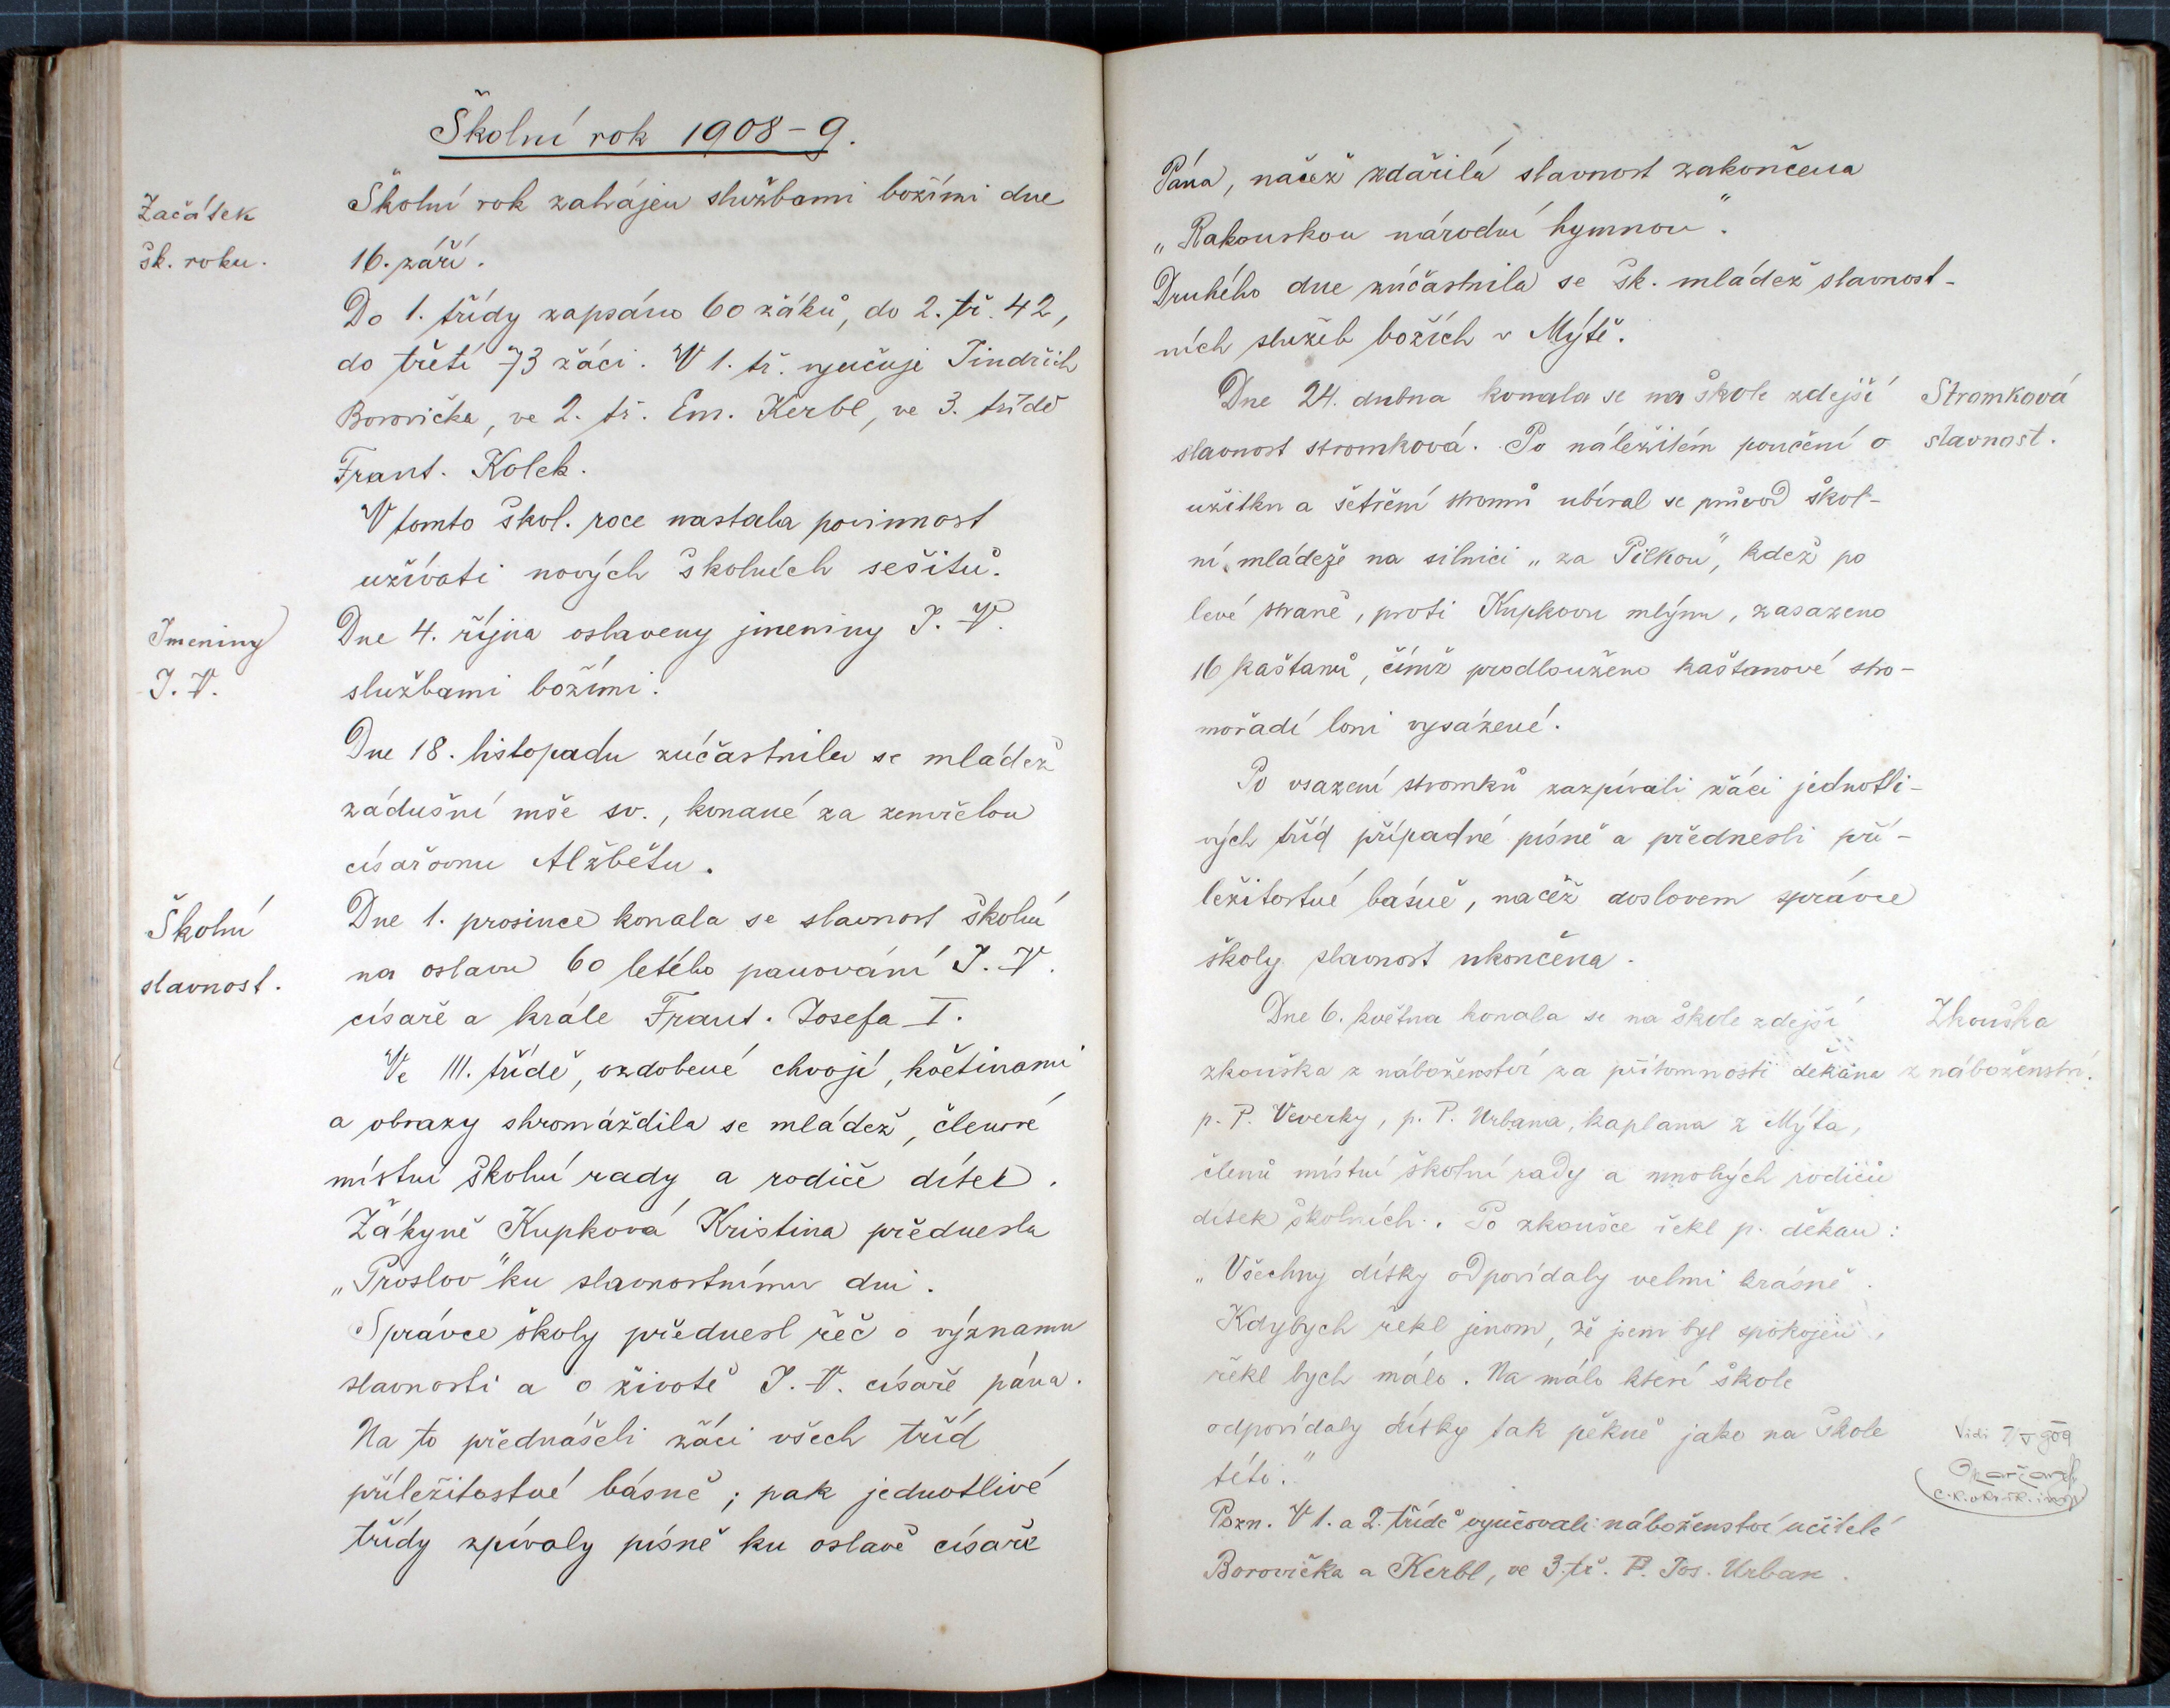 Školní rok 1908-9.
Začátek
šk. roku.
Školní rok zahájen službami božími dne
16. září.
Do 1. třídy zapsáno 60 žáků, do 2. tř. 42,
do třetí 73 žáci. V 1. tř. vyučuje Jindřich
Borovička, ve 2. tř. Em. Kerbl, ve 3. třídě
Frant. Kolek.
V tomto škol. roce nastala povinnost
užívati nových školních sešitů.
Jmeniny
J. V.
Dne 4. října oslaveny jmeniny J. V.
službami božími.
Dne 18. listopadu zúčastnila se mládež
zádušní mše sv., konané za zemřelou
císařovnu Alžbětu.
Školní
slavnost.
Dne 1. prosince konala se slavnost školní
na oslavu 60 letého panování J. V.
císaře a krále Frant. Josefa I.
Ve III. třídě, ozdobené chvojí, květinami
a obrazy shromáždila se mládež, členové
místní školní rady a rodiče dítek.
Žákyně Kupková Kristina přednesla
„Proslov" ku slavnostnímu dni.
Správce školy přednesl řeč o významu
slavnosti a o životě J. V. císaře pána.
Na to přednášeli žáci všech tříd
příležitostné básně; pak jednotlivé
třídy zpívaly písně ku oslavě císaře
Pána, načež zdařilá slavnost zakončena
„Rakouskou národní hymnou".
Druhého dne zúčastnila se šk. mládež slavnost-
ních služeb božích v Mýtě.
Stromková
slavnost.
Dne 24. dubna konala se na škole zdejší
slavnost stromková. Po náležitém poučení o
užitku a šetření stromů ubíral se průvod škol-
ní mládeže na silnici „za Pilkou", kdež po
levé straně, proti Kupkovu mlýnu, zasazeno
16 kaštanů, čímž prodlouženo kaštanové stro-
mořadí loni vysázené.
Po vsazení stromků zazpívali žáci jednotli-
vých tříd případné písně a přednesli pří-
ležitostné básně, načež doslovem správce
školy slavnost ukončena.
Zkouška
z náboženství.
Dne 6. května konala se na škole zdejší
zkouška z náboženství za přítomnosti děkana
p. P. Veverky, p. P. Urbana, kaplana z Mýta,
členů místní školní rady a mnohých rodičů
dítek školních. Po zkoušce řekl p. děkan:
„Všechny dítky odpovídaly velmi krásně.
Kdybych řekl jenom, že jsem byl spokojen,
řekl bych málo. Na málo které škole
odpovídaly dítky tak pěkně jako na škole
této."
Vidi 7/V 909
Pozn. V 1. a 2. třídě vyučovali náboženství učitelé
Borovička a Kerbl, ve 3. tř. P. Jos. Urban.